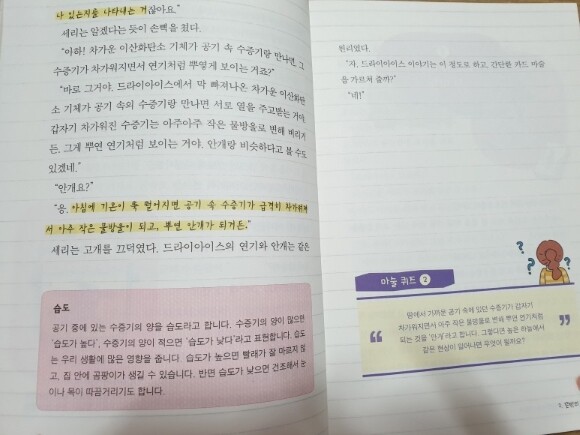 나 있는지를 나타내는 거잖아요."
세리는 알겠다는 듯이 손뼉을 쳤다.
"아하! 차가운 이산화탄소 기체가 공기 속 수증기랑 만나면, 그
수증기가 차가워지면서 연기처럼 뿌옇게 보이는 거죠?"
"바로 그거야. 드라이아이스에서 막 빠져나온 차가운 이산화탄
소 기체가 공기 속의 수증기랑 만나면 서로 열을 주고받는 거야.
갑자기 차가워진 수증기는 아주아주 작은 물방울로 변해 버리거
든. 그게 뿌연 연기처럼 보이는 거야. 안개랑 비슷하다고 볼 수도
있겠네."
"안개요?"
"응. 아침에 기온이 뚝 떨어지면 공기 속 수증기가 급격히 차가워져
서 아주 작은 물방울이 되고, 뿌연 안개가 되거든."
세리는 고개를 끄덕였다. 드라이아이스의 연기와 안개는 같은
습도
공기 중에 있는 수증기의 양을 습도라고 합니다. 수증기의 양이 많으면
'습도가 높다', 수증기의 양이 적으면 '습도가 낮다'라고 표현합니다. 습도
는 우리 생활에 많은 영향을 줍니다. 습도가 높으면 빨래가 잘 마르지 않
고, 집 안에 곰팡이가 생길 수 있습니다. 반면 습도가 낮으면 건조해서 눈
이나 목이 따끔거리기도 합니다.
원리였다.
"자, 드라이아이스 이야기는 이 정도로 하고, 간단한 카드 마술
을 가르쳐 줄까?"
"네!"
마술 퀴즈 2
땅에서 가까운 공기 속에 있던 수증기가 갑자기
차가워지면서 아주 작은 물방울로 변해 뿌연 연기처럼
되는 것을 '안개'라고 합니다. 그렇다면 높은 하늘에서
같은 현상이 일어나면 무엇이 될까요?